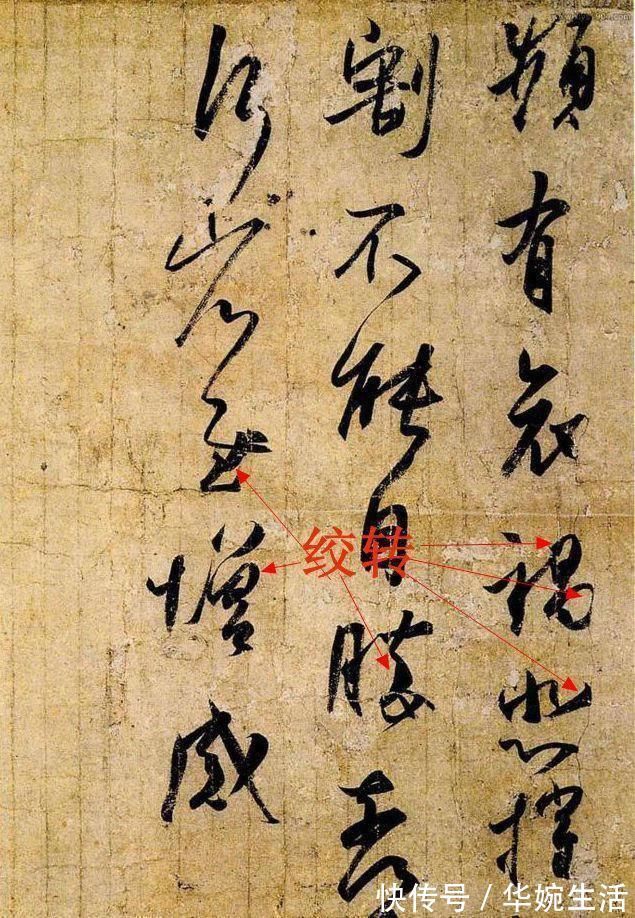 頻有哀禍悲摧
割不能自勝奈
何省慰增感
绞转
快传号 / 华婉生活